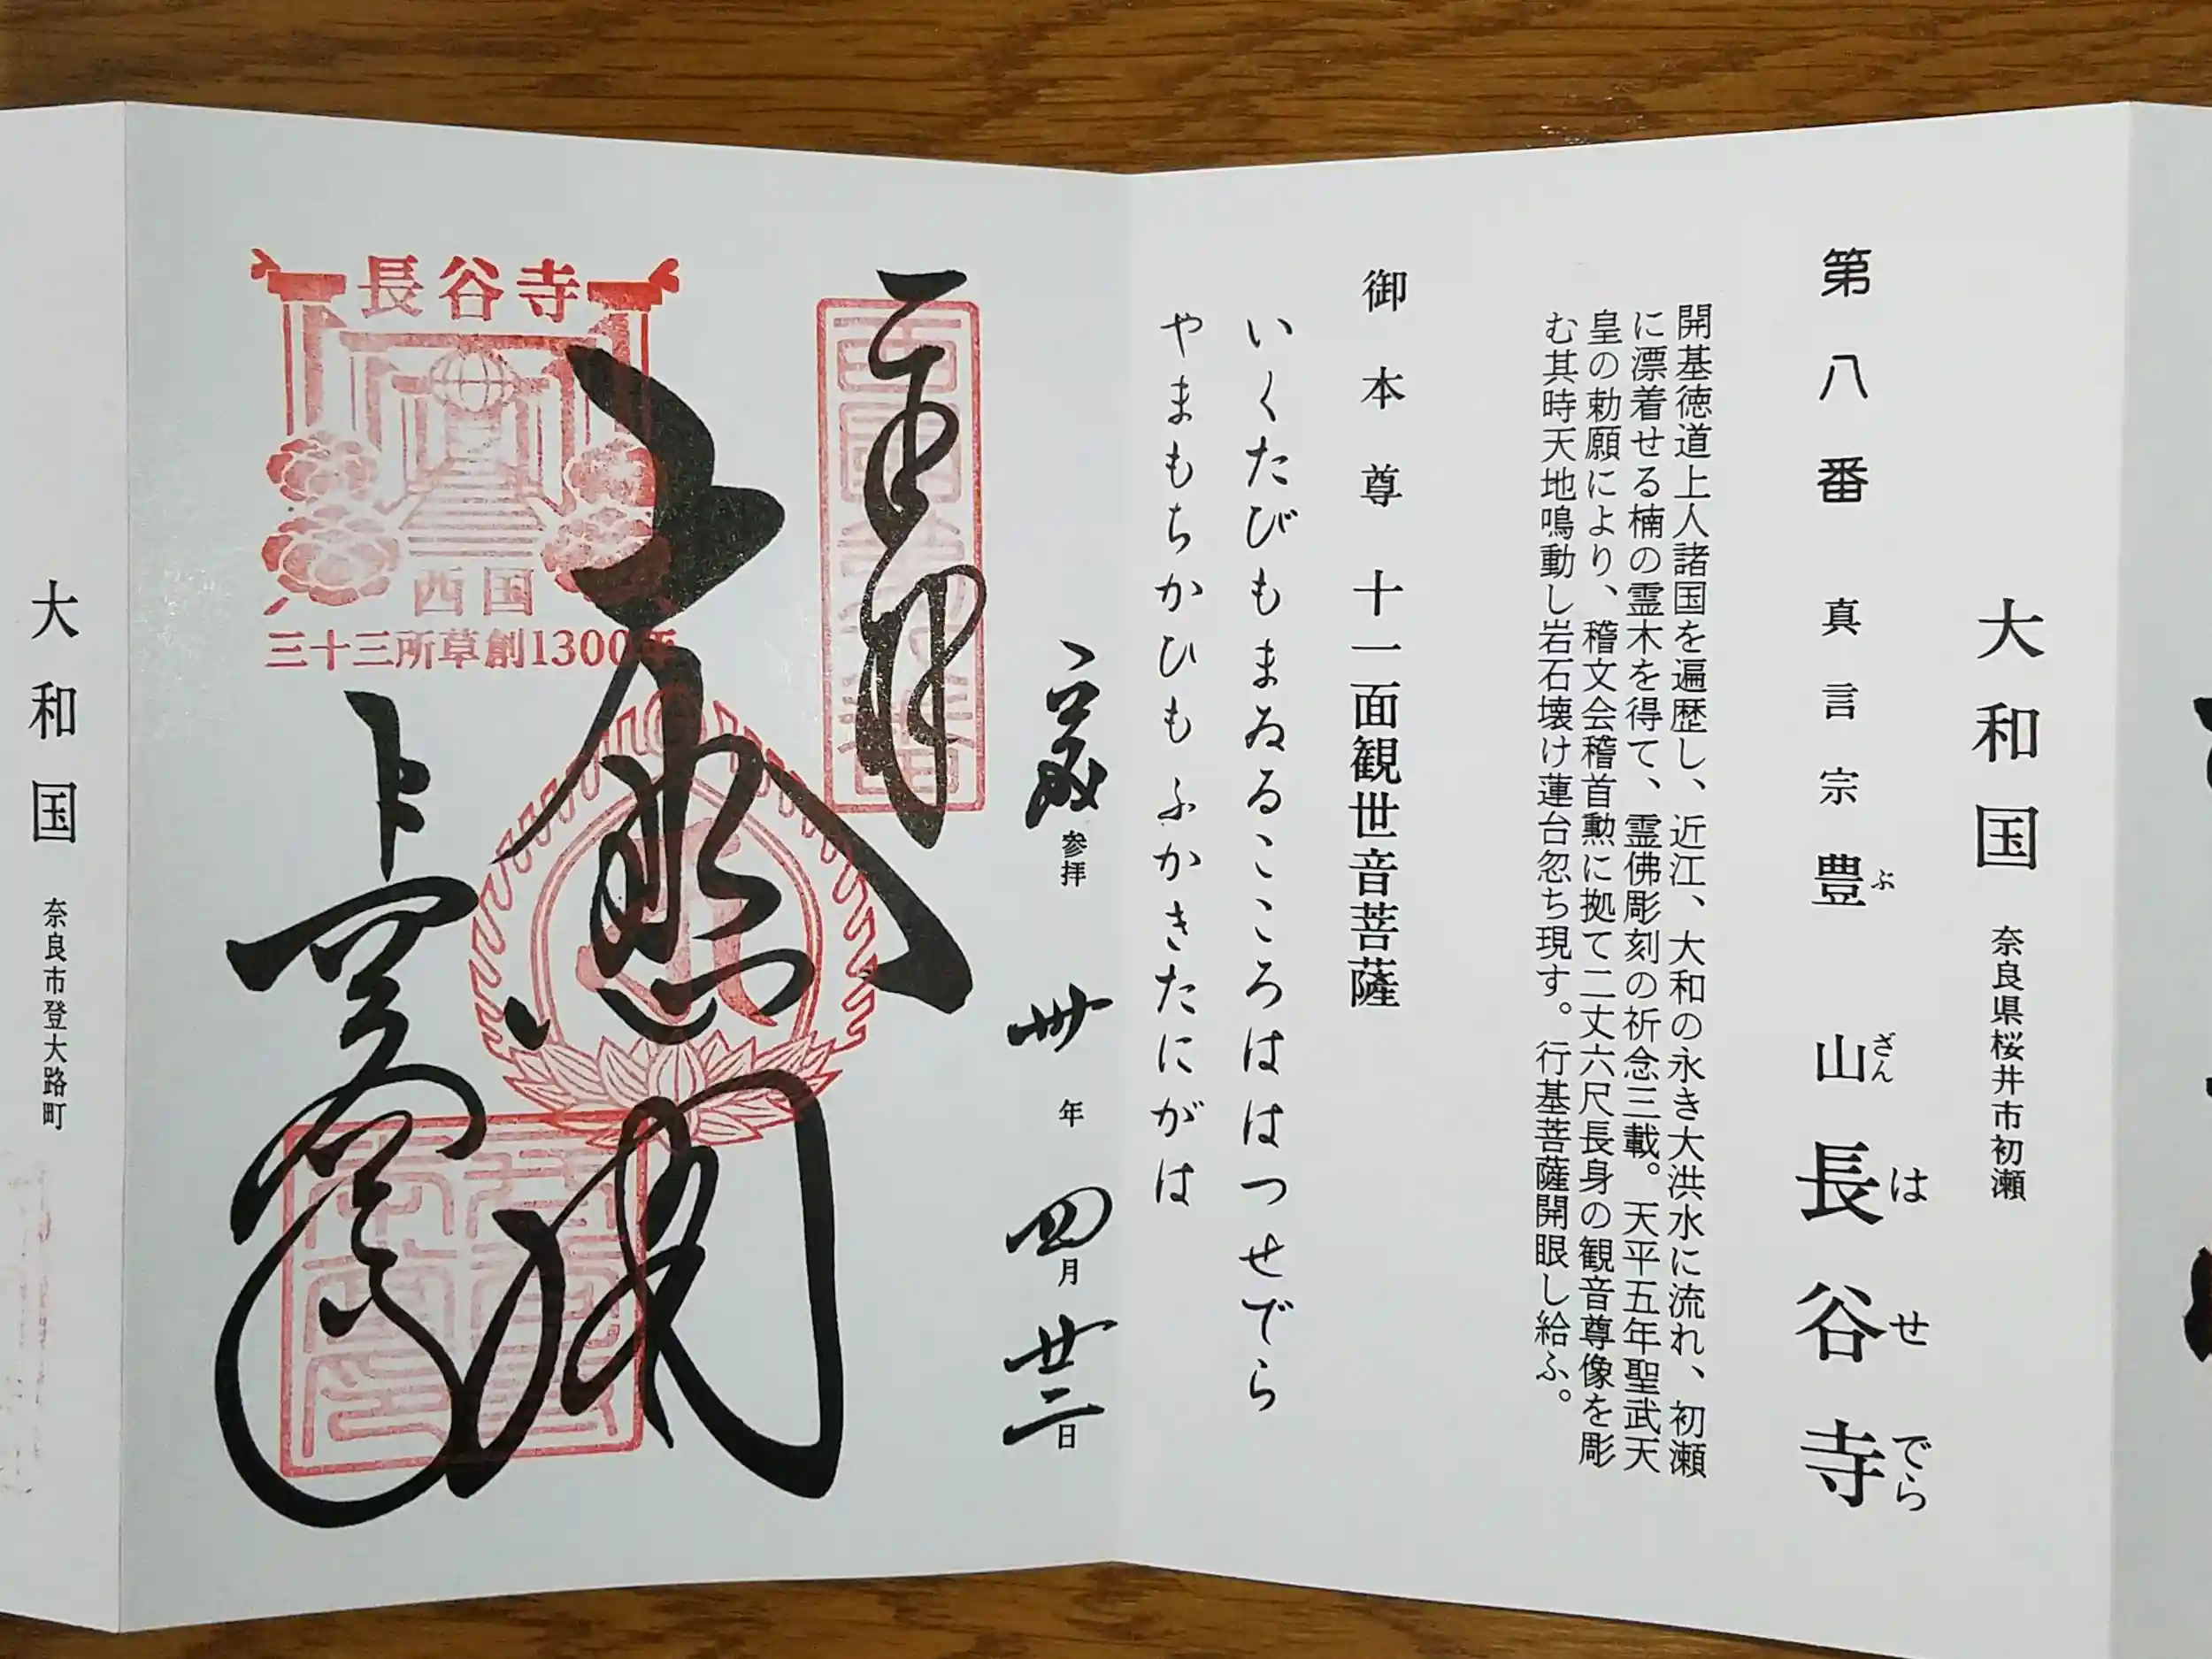 大和国 奈良県桜井市初瀬
第八番 真言宗 豊山長谷寺
ぶ ざん は せ でら
開基徳道上人諸国を遍歴し、近江、大和の永き大洪水に流れ、初瀬
に漂着せる楠の霊木を得て、霊佛彫刻の祈念三載。天平五年聖武天
皇の勅願により、稽文会稽首勲に拠て二丈六尺長身の観音尊像を彫
む其時天地鳴動し岩石壊け蓮台忽ち現す。行基菩薩開眼し給ふ。
御本尊 十一面観世音菩薩
いくたびもまゐるこゝろははつせでら
やまもちかひもふかきたにがは
参拝 卅年四月廿二日
奉拝
大悲閣
長谷寺
長谷寺
西国
三十三所草創1300年
大和国 奈良市登大路町